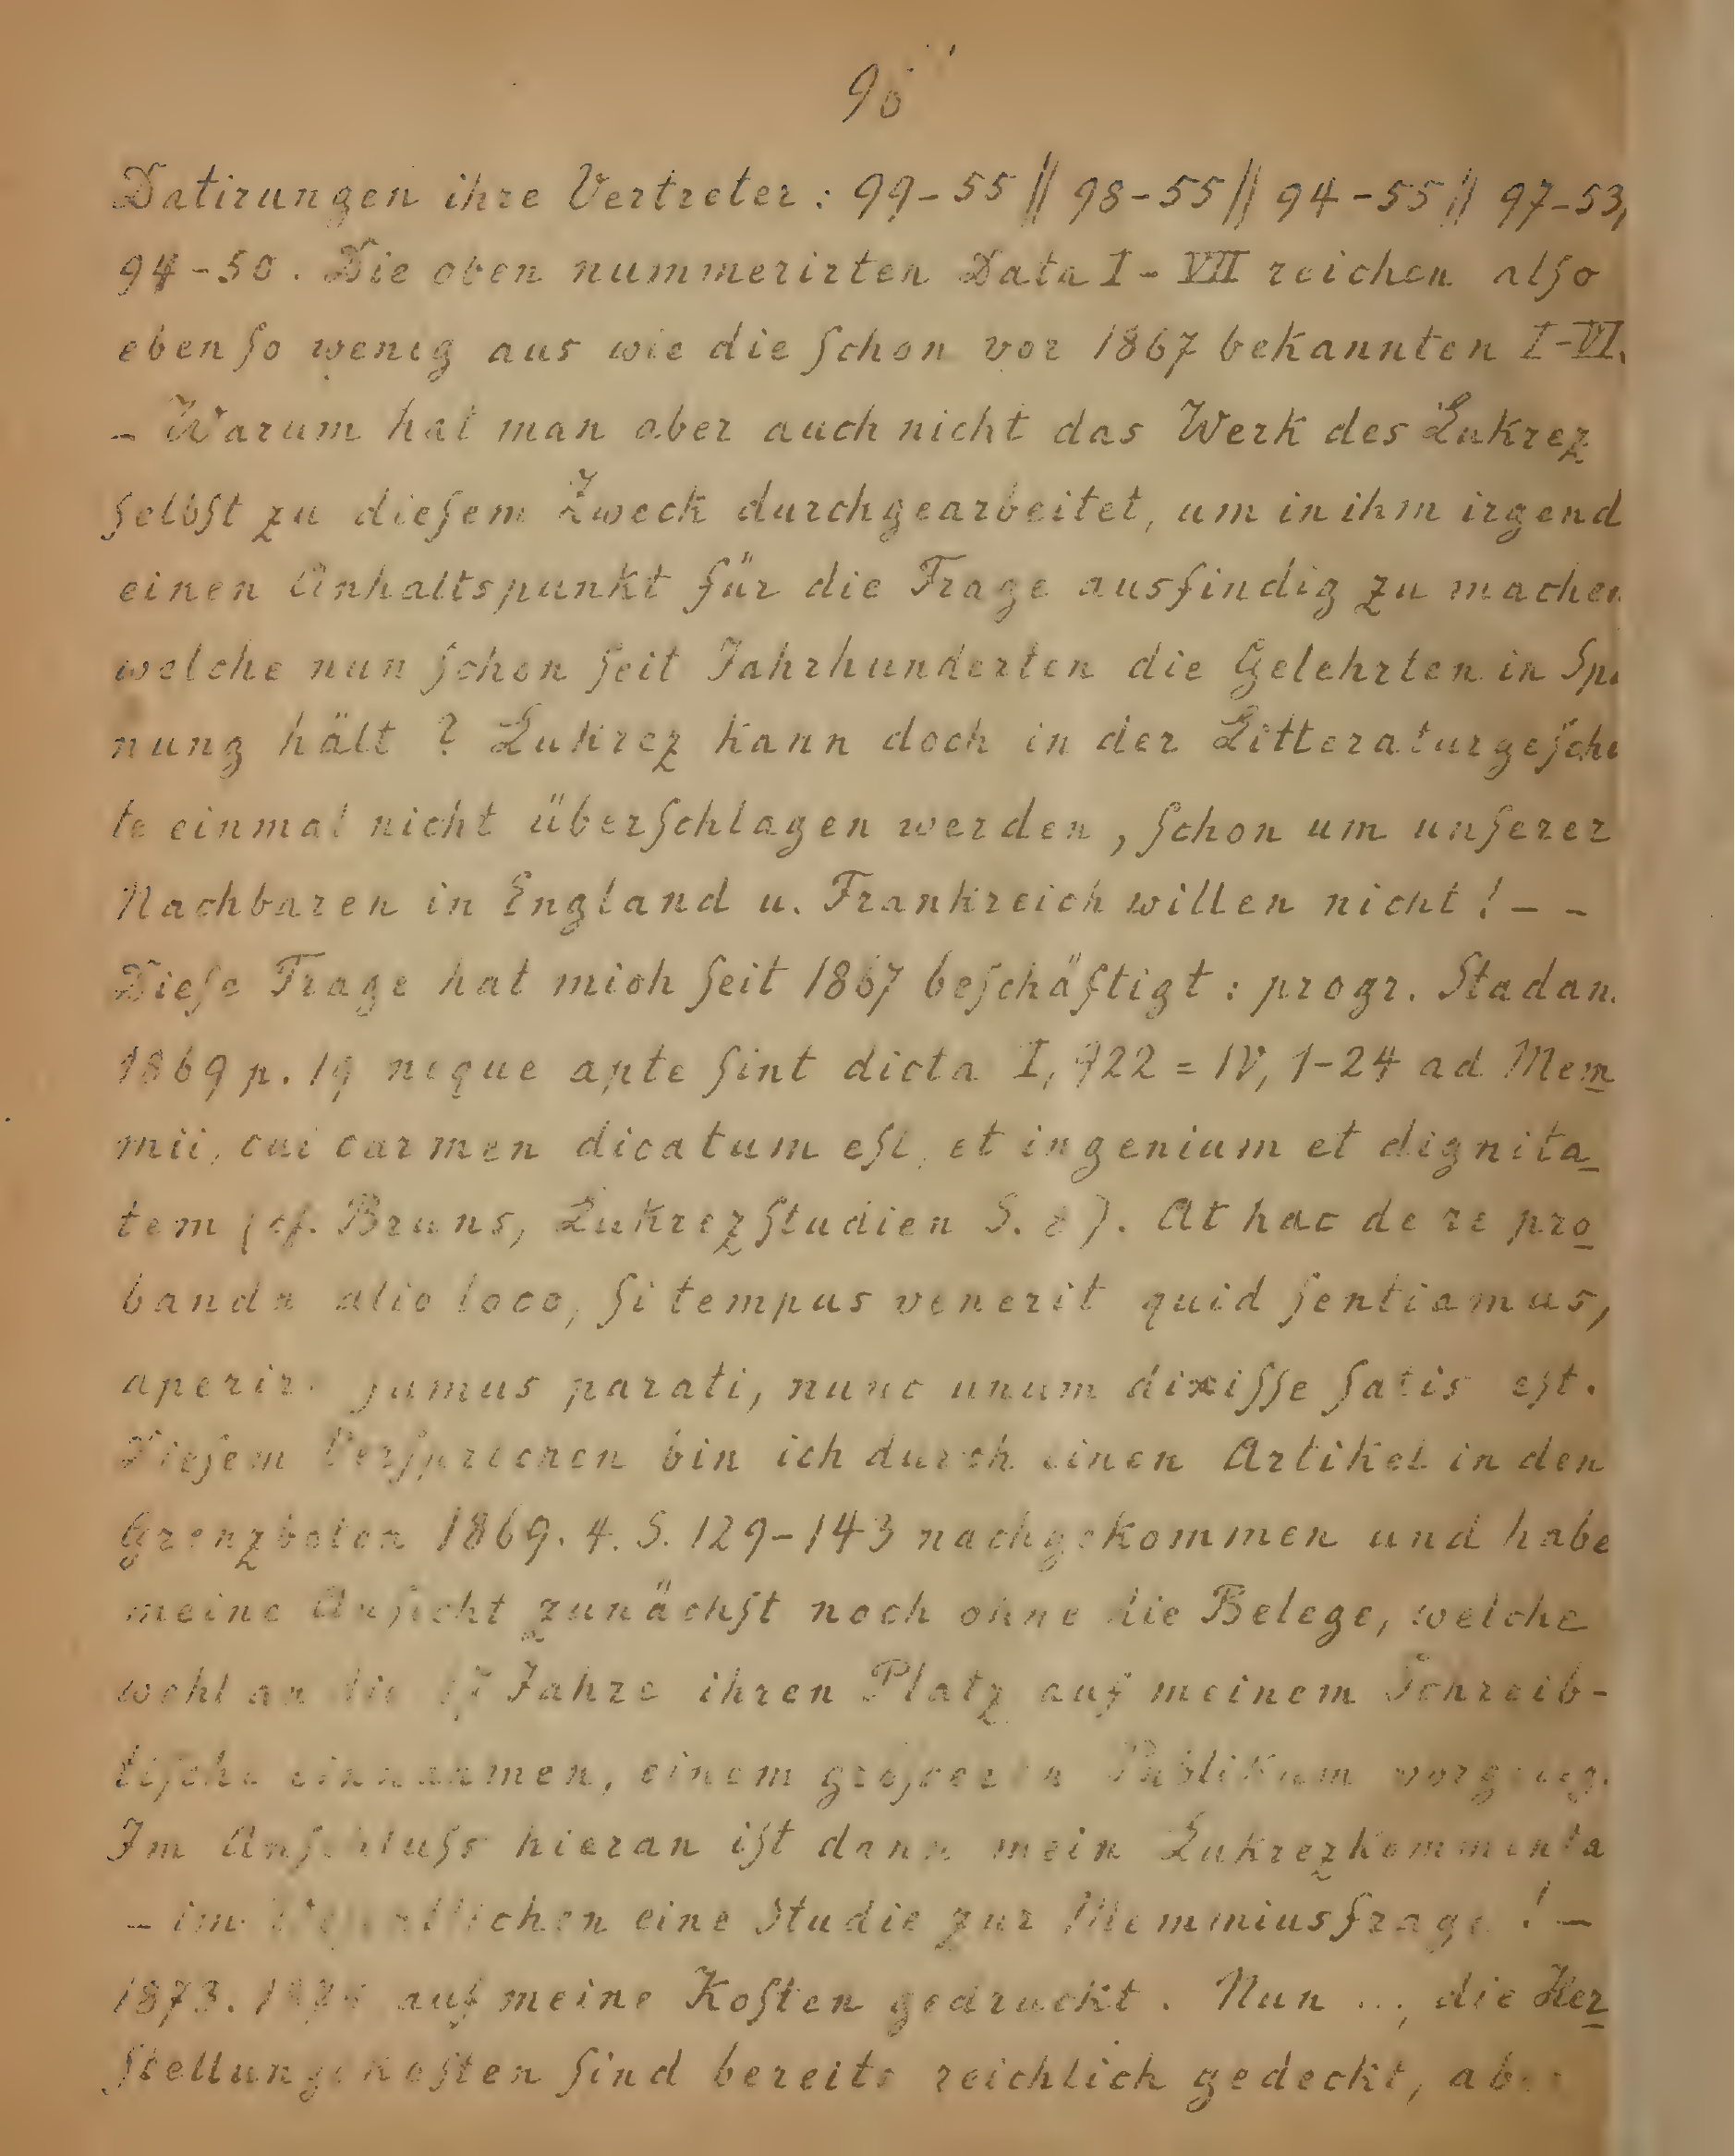 Datirungen ihre Vertreter : 99-55 || 98-55 || 94-55 || 97-53,
94-50. Die oben nummerirten Data I-VII reichen alſo
ebenſo wenig aus wie die ſchon vor 1867 bekannten I-VI.
- Warum hat man aber auch nicht das Werk des Lukrez
ſelbſt zu dieſem Zweck durchgearbeitet, um in ihm irgend
einen Anhaltspunkt für die Frage ausfindig zu machen
welche nun ſchon ſeit Jahrhunderten die Gelehrten in
nung hält ? Lukrez kann doch in der Litteraturgeſch
te einmal nicht überſchlagen werden, ſchon um unſerer
Nachbaren in England u. Frankreich willen nicht! - -
Dieſe Frage hat mich ſeit 1867 beſchäftigt : progr. Stadan.
1869 p. 19 neque apte ſint dicta I, 922 = IV, 1-24 ad Mem
mii, cui carmen dicatum eſt, et ingenium et dignita
tem (cf. Bruns, Lukrezſtudien S. ). At hac de re pro
banda alio loco, ſi tempus venerit quid ſentiamus,
aperire ſumus parati, nunc unum dixiſſe ſatis eſt.
Dieſem Verſprechen bin ich durch einen Artikel in den
Grenzboten 1869. 4. S. 129-143 nachgekommen und habe
meine Anſicht zunächſt noch ohne die Belege, welche
wohl an die Jahre ihren Platz auf meinem Schreib-
tiſche einnahmen, einem größeren Publikum
Im Anſchluſs hieran iſt dann mein Lukrezkommenta
- im Weſentlichen eine Studie zur Memmiusfrage ! -
1873. auf meine Koſten gedruckt. Nun ..., die Her
ſtellungskoſten ſind bereits reichlich gedeckt, aber